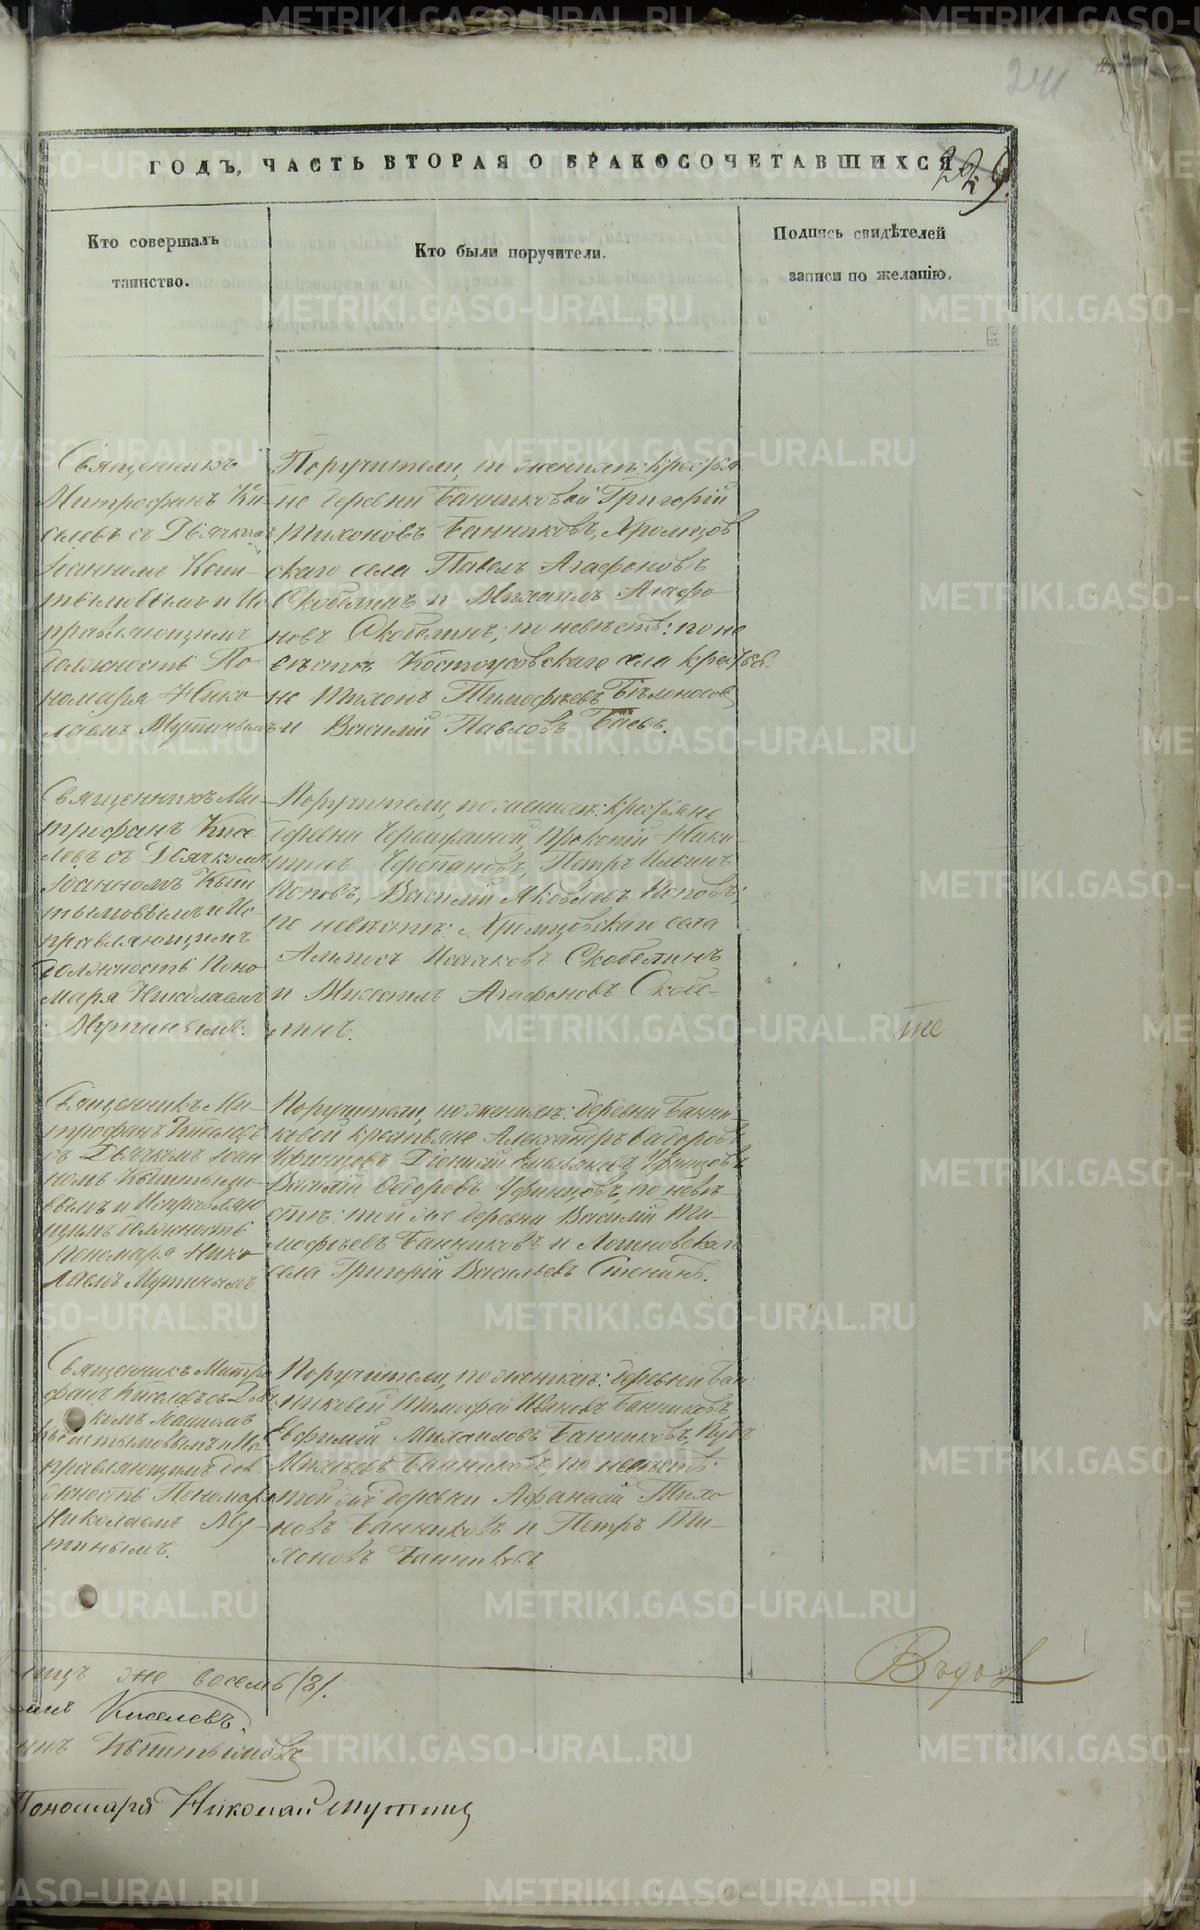 241
ГОДЪ, ЧАСТЬ ВТОРАЯ О БРАКОСОЧЕТАВШИХСЯ
229.
Кто совершалъ
таинство.
Кто были поручители.
Подпись свидѣтелей
записи по желанію.
Священникъ
Митрофанъ Ки-
селевъ съ Дьячкомъ
Іоанномъ Кыш-
тымовымъ и Ис
правляющимъ
должность По-
номаря Нико-
лаемъ Мутинымъ
Поручители, по женихѣ: крестья
не деревни Банниковой Григорій
Тихоновъ Банниковъ, Хромцов
скаго села Павелъ Агафоновъ
Скобелинъ и Михаилъ Агафо
новъ Скобелинъ; по невѣстѣ: по не
вѣстѣ Костоусовскаго села крестья
не Тихонъ Тимофѣевъ Бѣлоносов
и Василій Павловъ Баевъ.
Священникъ Ми-
трофанъ Кисе
левъ съ Дьячкомъ
Іоанномъ Кыш
тымовымъ и Ис
правляющимъ
должность Поно
маря Николаемъ
Мутинымъ.
Поручители, по женихѣ: крестьяне
деревни Прокопій Ники-
тинъ Черепановъ, Петръ Ильинъ
Поповъ, Василій Яковлевъ Поповъ;
по невѣстѣ: Хромцовскаго села
Исааковъ Скобелинъ
и Михаилъ Агафоновъ Скобе-
линъ.
Священникъ Ми-
трофанъ Киселевъ
съ Дьячкомъ Іоан
номъ Кыштымо
вымъ и Исправляю
щимъ должность
Пономаря Нико
лаемъ Мутинымъ.
Поручители, по женихѣ: деревни Банни
ковой крестьяне Александръ Ѳедоровъ
Уфинцовъ Діонисій Емельяновъ Уфинцовъ
Василій Ѳедоровъ Уфинцовъ, по невѣ-
стѣ: той же деревни Василій Ти-
мофѣевъ Банниковъ и
села Григорій Васильевъ Стенинъ.
Священникъ Митро
фанъ Киселевъ съ Дья
комъ Іоанномъ
Кыштымовымъ и Ис
правляющимъ дол
жность Пономаря
Николаемъ Му-
тинымъ.
Поручители, по женихѣ: деревни Бан
никовой Тимофей Ивановъ Банниковъ
Евфимій Михаиловъ Банниковъ,
Михѣевъ Банниковъ, по невѣстѣ:
той же деревни Афанасій Тихо
новъ Банниковъ и Петръ Ти-
хоновъ Банниковъ.
же восемь /8/.
Киселевъ.
Кыштымовъ
Пономаря Николай Мутинъ